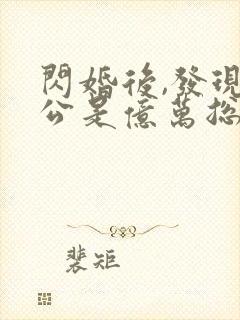 閃婚後,發現
公是億萬總
裴矩